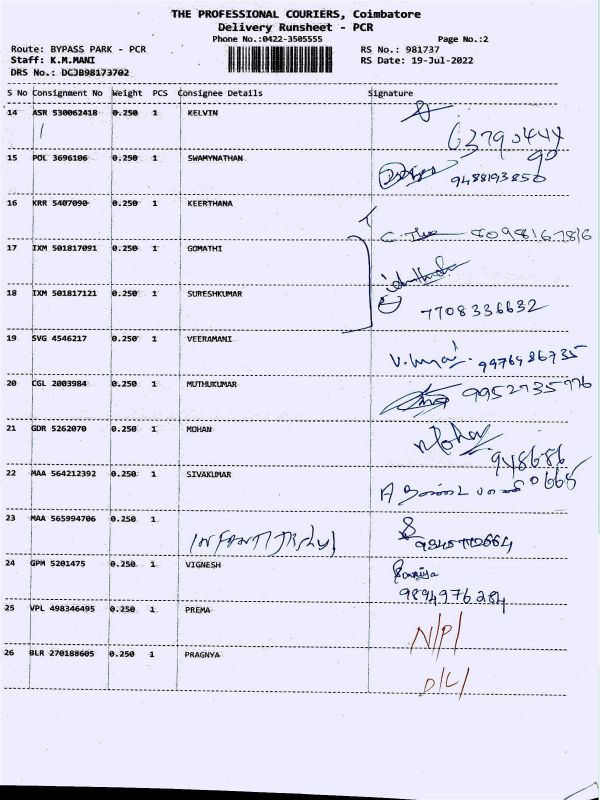 THE PROFESSIONAL COURIERS, Coimbatore
Delivery Runsheet - PCR
Phone No.:0422-3505555 Page No.:2
Route: BYPASS PARK - PCR RS No.: 981737
Staff: K.M.MANI RS Date: 19-Jul-2022
DRS No.: DCJB98173702
S No Consignment No Weight PCS Consignee Details Signature
14 ASR 530062418 0.250 1 KELVIN
63790444
90
15 POL 3696106 0.250 1 SWAMYNATHAN 9488193850
16 KRR 5407090 0.250 1 KEERTHANA
8098167816
17 IXM 501817091 0.250 1 GOMATHI
18 IXM 501817121 0.250 1 SURESHKUMAR
7708336632
19 SVG 4546217 0.250 1 VEERAMANI
9976986735
20 CGL 2003984 0.250 1 MUTHUKUMAR 9952735776
21 GDR 5262070 0.250 1 MOHAN Mohan
948686
22 MAA 564212392 0.250 1 SIVAKUMAR 0668
23 MAA 565994706 0.250 1
24 GPM 5201475 0.250 1 VIGNESH
9894976284
25 VPL 498346495 0.250 1 PREMA N/P/
26 BLR 270188605 0.250 1 PRAGNYA
D/L/